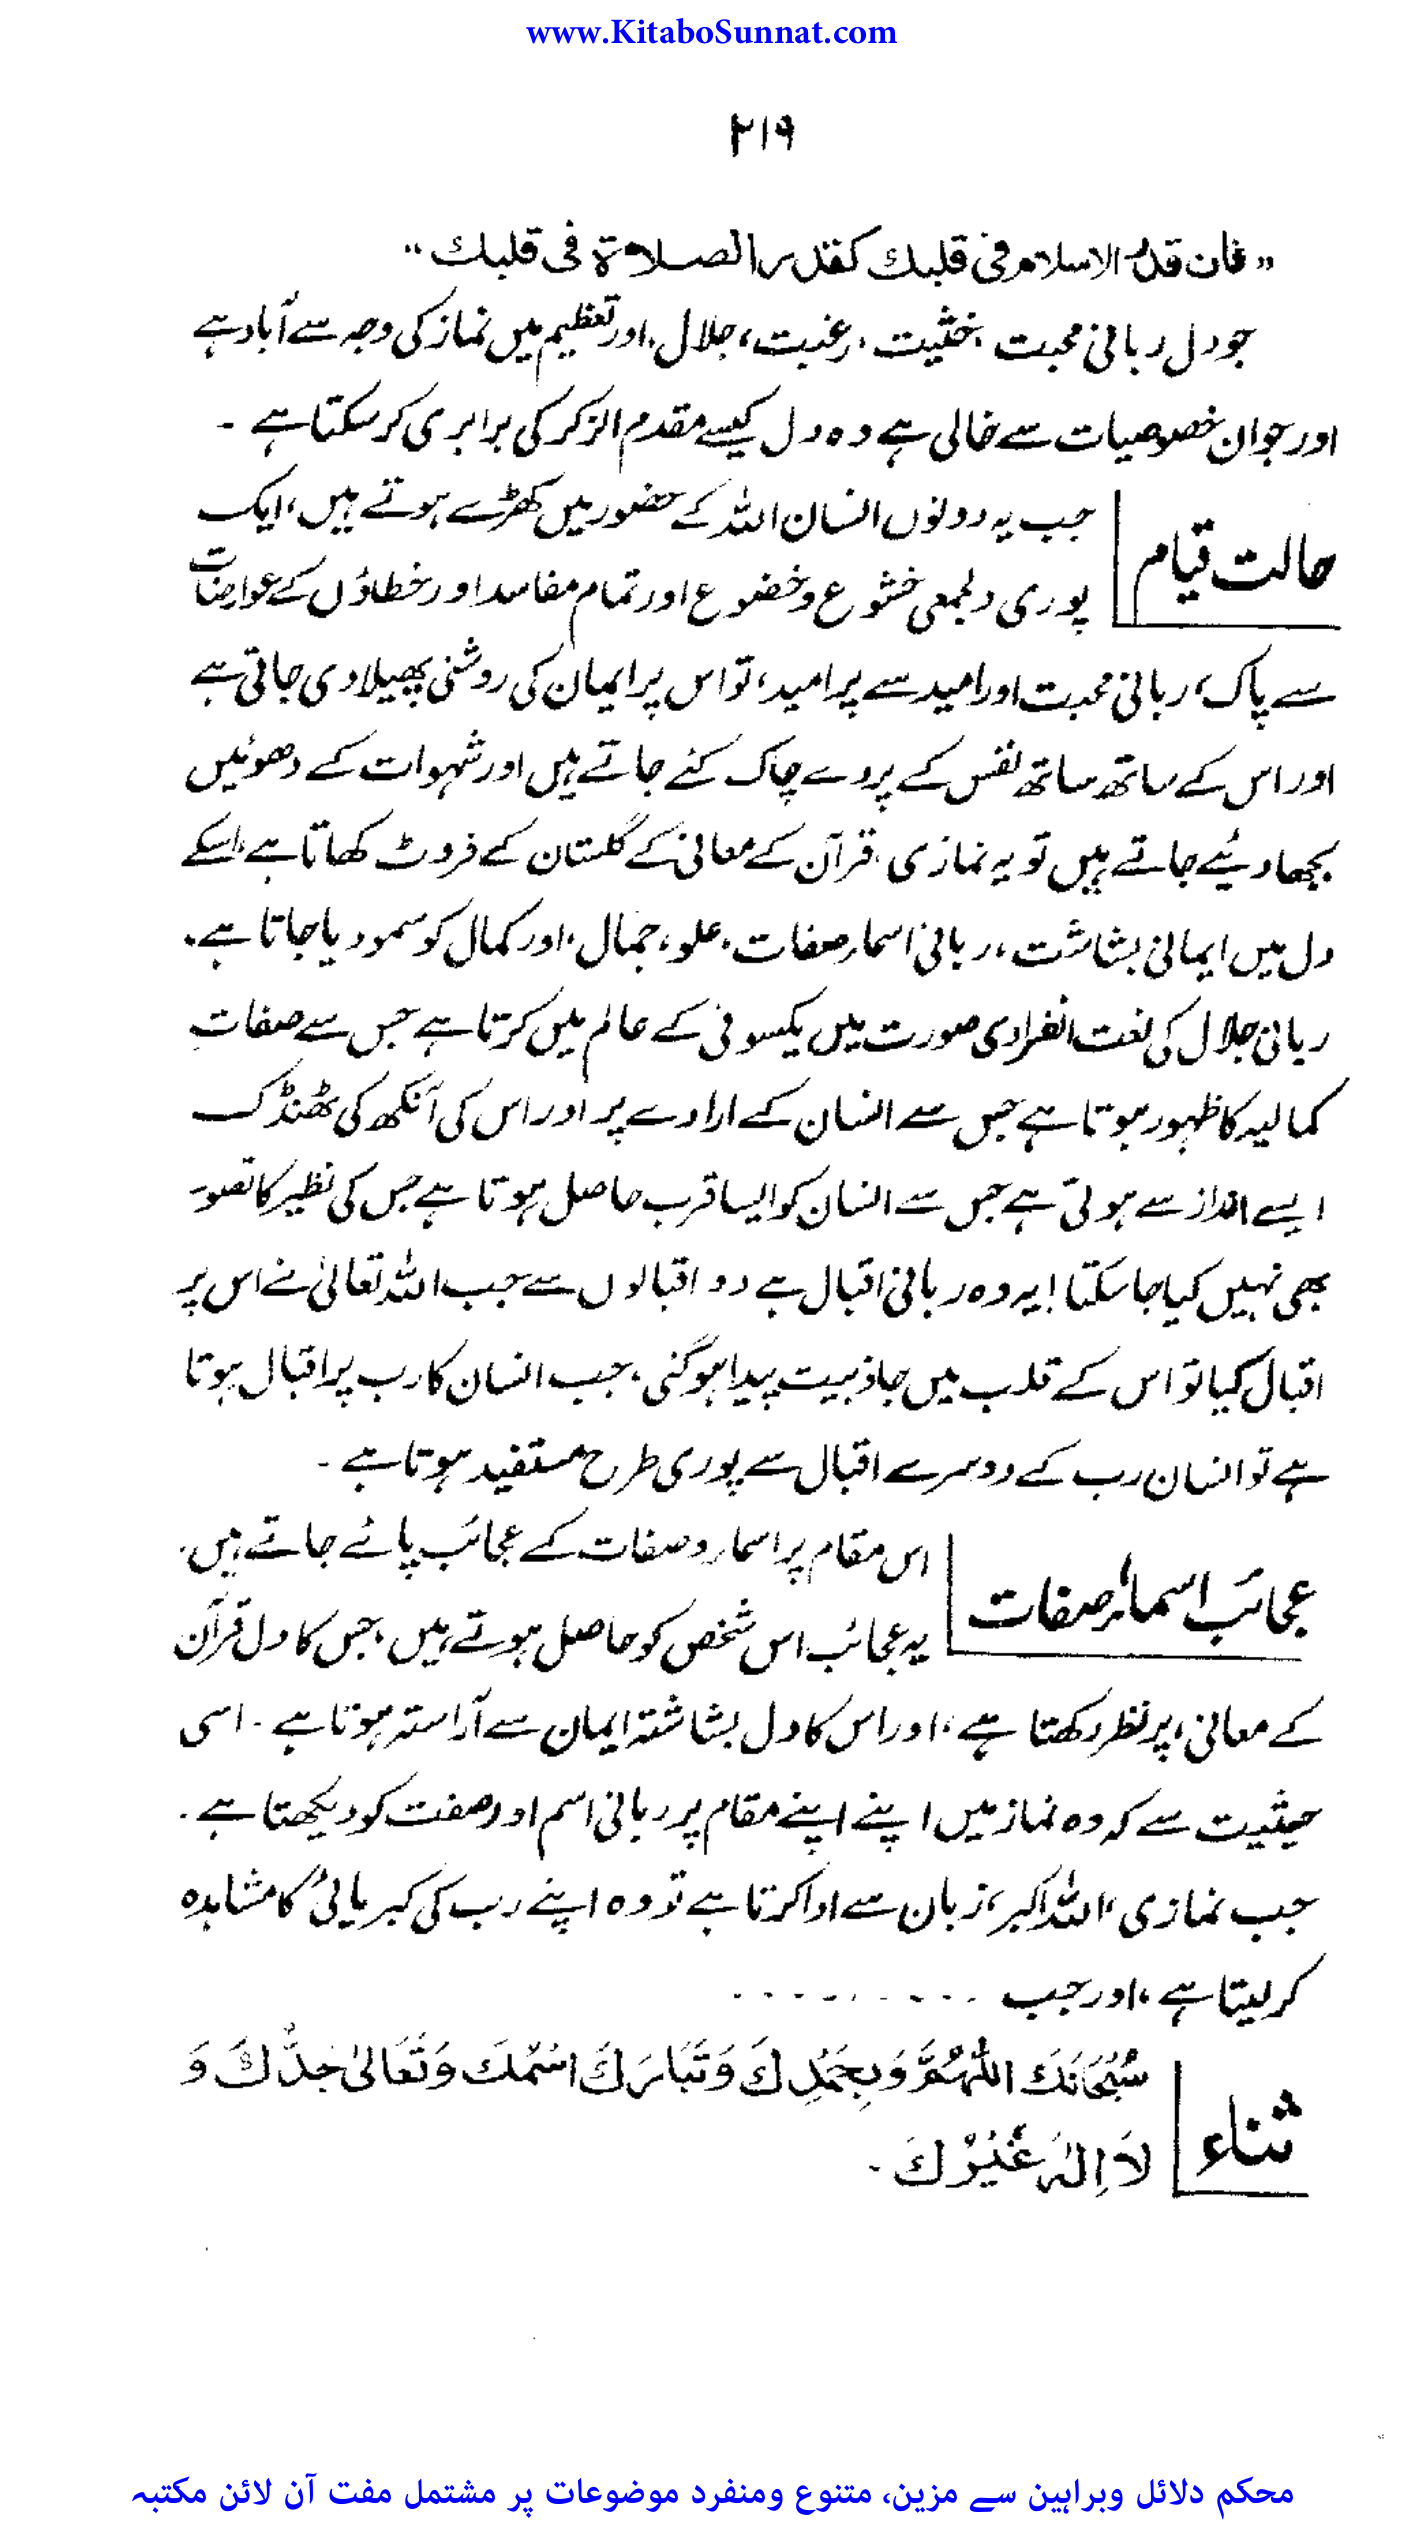 www.KitaboSunnat.com
۲۱۹
"فان قدر الاسلام فی قلبك كقدر الصلاة فی قلبك"
جو دل ربانی محبت، خشیت، رغبت، جلال، اور تعظیم میں نماز کی وجہ سے آباد ہے
اور جو ان خصوصیات سے خالی ہے وہ دل کیسے مقدم الذکر کی برابری کر سکتا ہے۔
حالت قیام
جب یہ دونوں انسان اللہ کے حضور میں کھڑے ہوتے ہیں، ایک
پوری دلجمعی خشوع و خضوع اور تمام مفاسد اور خطاؤں کے عوارضات
سے پاک، ربانی محبت اور امید سے پر امید، تو اس پر ایمان کی روشنی پھیلا دی جاتی ہے
اور اس کے ساتھ ساتھ نفس کے پردے چاک کئے جاتے ہیں اور شہوات کے دھوئیں
بجھا دیئے جاتے ہیں تو یہ نمازی، قرآن کے معانی کے گلستان کے فروٹ کھاتا ہے، اسکے
دل میں ایمانی بشاشت، ربانی اسماء صفات، علو، جمال، اور کمال کو سمو دیا جاتا ہے۔
ربانی جلال کی نعت انفرادی صورت میں یکسوئی کے عالم میں کرتا ہے جس سے صفاتِ
کمالیہ کا ظہور ہوتا ہے جس سے انسان کے ارادے پر اور اس کی آنکھ کی ٹھنڈک
ایسے انداز سے ہوتی ہے جس سے انسان کو ایسا قرب حاصل ہوتا ہے جس کی نظیر کا تصور
بھی نہیں کیا جا سکتا! یہ وہ ربانی اقبال ہے دو اقبالوں سے جب اللہ تعالیٰ نے اس پر
اقبال کیا تو اس کے قلب میں جاذبیت پیدا ہو گئی، جب انسان کا رب پر اقبال ہوتا
ہے تو انسان رب کے دوسرے اقبال سے پوری طرح مستفید ہوتا ہے۔
عجائب اسماء صفات
اس مقام پر اسماء و صفات کے عجائب پائے جاتے ہیں۔
یہ عجائب اس شخص کو حاصل ہوتے ہیں، جس کا دل قرآن
کے معانی، پر نظر رکھتا ہے، اور اس کا دل بشاشۃ ایمان سے آراستہ ہوتا ہے۔ اسی
حیثیت سے کہ وہ نماز میں اپنے اپنے مقام پر ربانی اسم اور صفت کو دیکھتا ہے۔
جب نمازی 'اللہ اکبر' زبان سے ادا کرتا ہے تو وہ اپنے رب کی کبریائی کا مشاہدہ
کر لیتا ہے، اور جب . . . . . . . . .
ثناء
سُبْحَانَكَ اللّٰهُمَّ وَبِحَمْدِكَ وَتَبَارَكَ اسْمُكَ وَتَعَالىٰ جَدُّكَ وَ
لَا اِلٰهَ غَيْرُكَ۔
محکم دلائل وبراہین سے مزین، متنوع ومنفرد موضوعات پر مشتمل مفت آن لائن مکتبہ